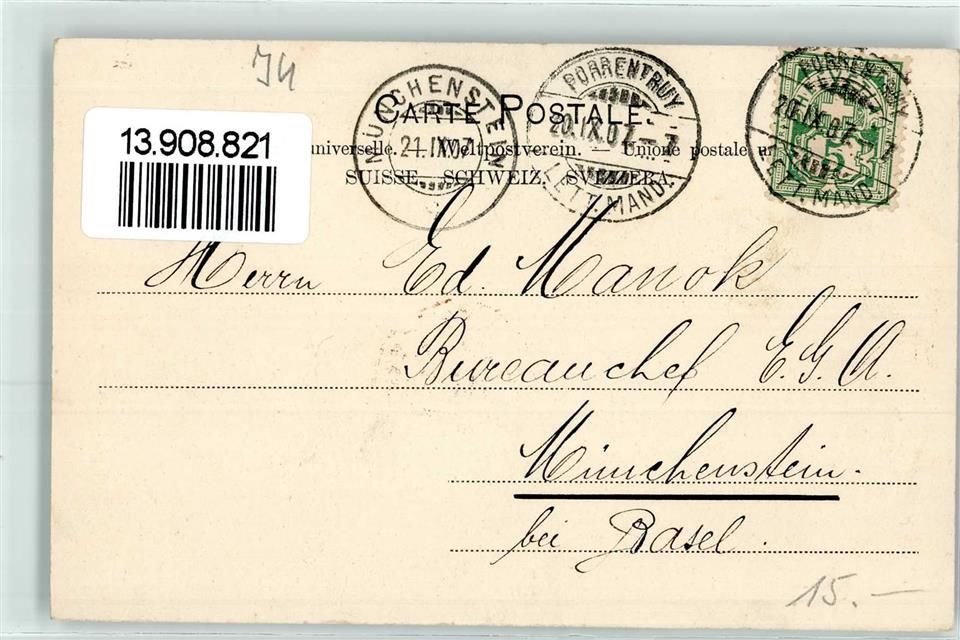 JH
13.908.821
CARTE POSTALE.
universelle. — Weltpostverein. — Unione postale u
SUISSE. SCHWEIZ. SVIZZERA.
MÜNCHENSTEIN
21.IX.07
PORRENTRUY
20.IX.07.—7
LETT. MAND.
PORRENTRUY
20.IX.07.—7
LETT. MAND.
Herrn Ed. Manok
Bureauchef E.G.A.
Münchenstein.
bei Basel.
15.—